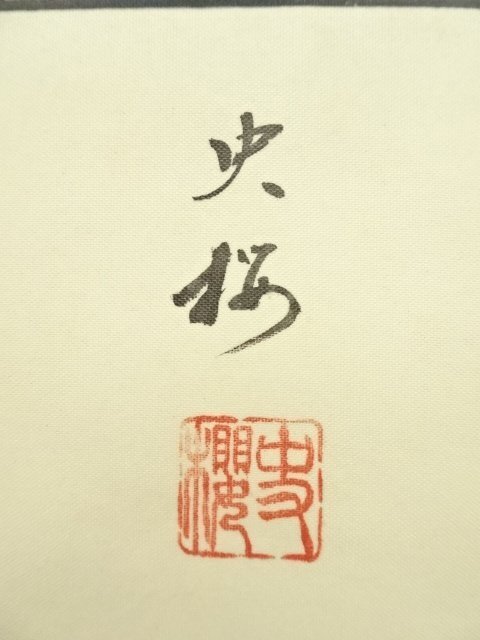 史
桜
史櫻